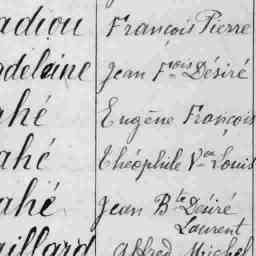 adiou François Pierre
deleine Jean F.ois Désiré
ahé Eugène François
ahé Théophile V.or Louis
ahé Jean B.te Désiré
Laurent
aillard Alfred Michel